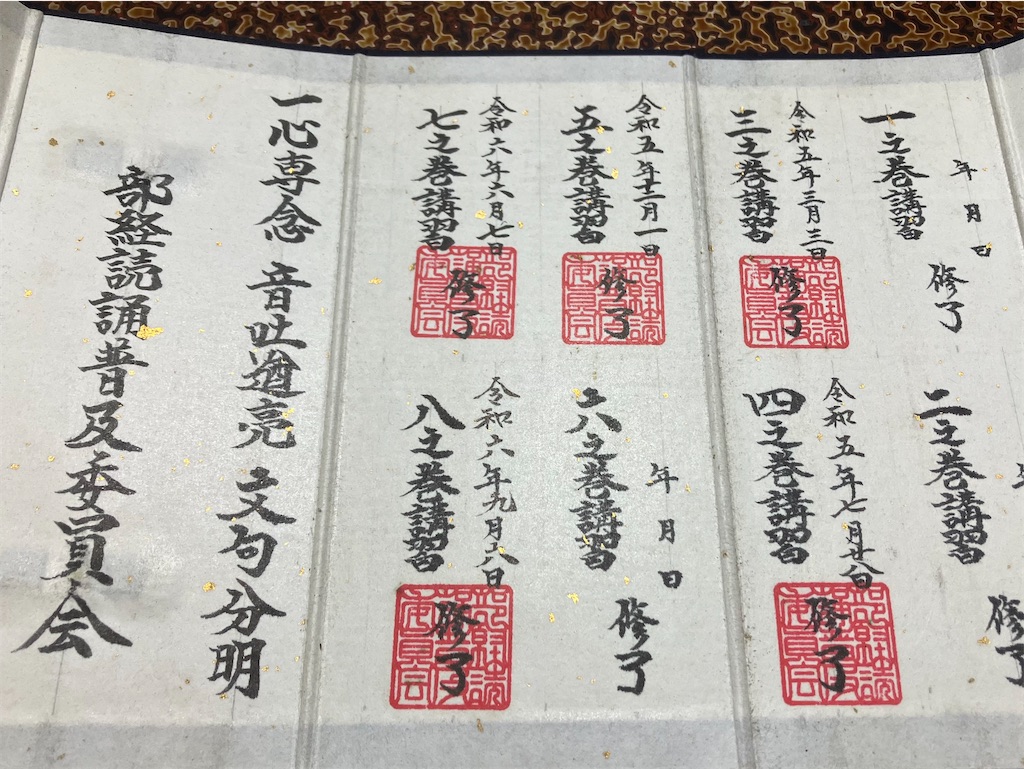 年 月 日
一之巻講習 修了
二之巻講習 修了
令和五年三月三日
三之巻講習 修了
令和五年七月
四之巻講習 修了
令和五年十二月一日
五之巻講習 修了
年 月 日
六之巻講習 修了
令和六年六月七日
七之巻講習 修了
令和六年九月八日
八之巻講習 修了
一心専念 音吐遒亮 文句分明
部経読誦普及委員会